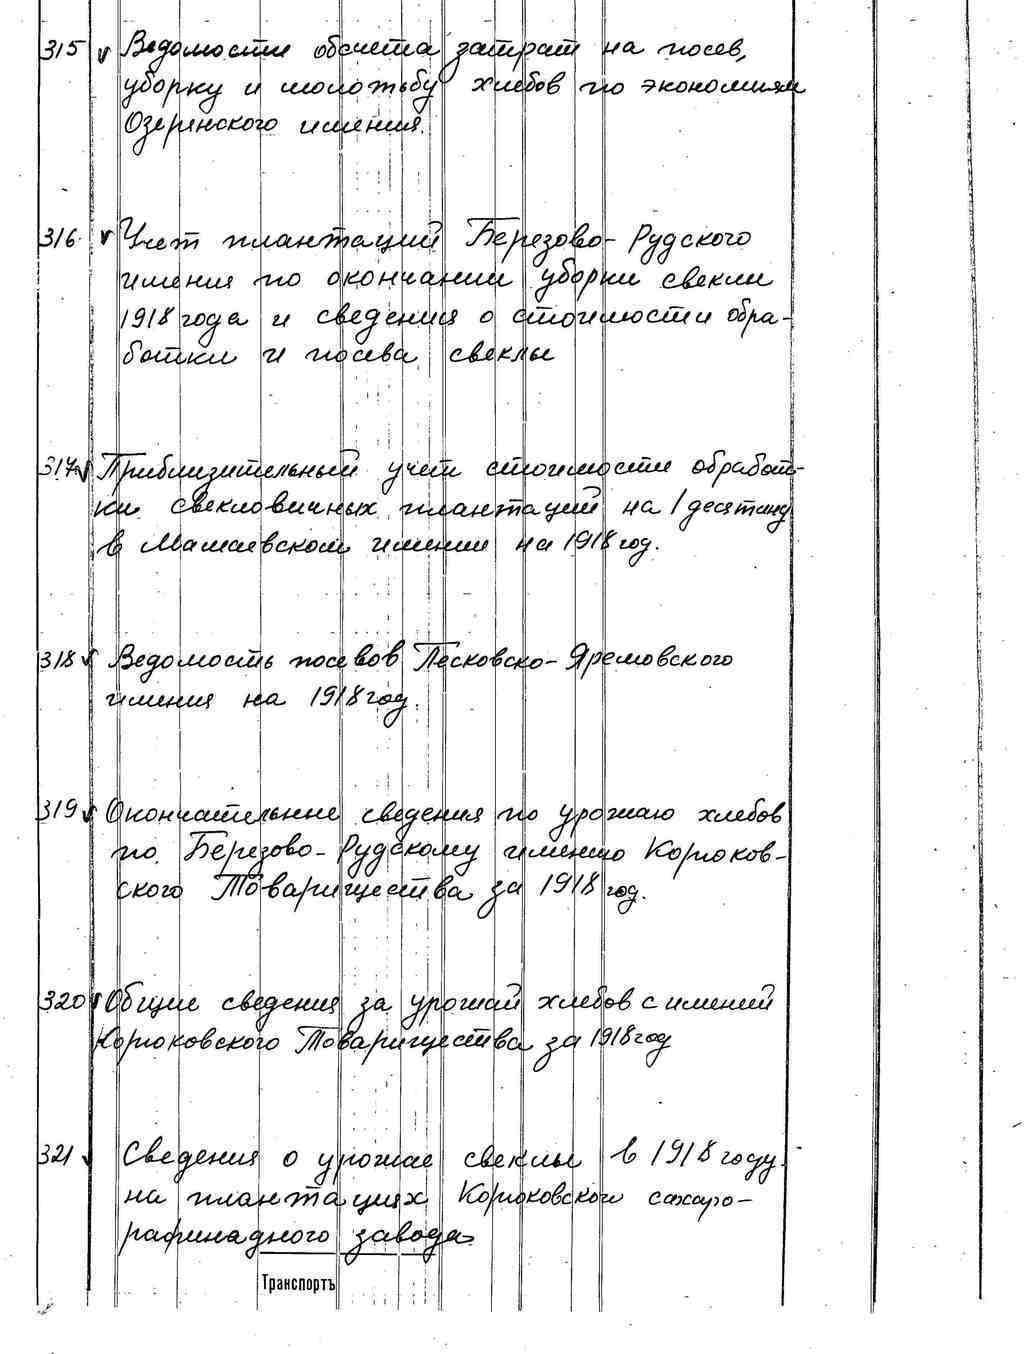 315 v Ведомости обсчета затрат на посев,
уборку и молотьбу хлебов по экономиям
Озерянского имения.
316 v Учет плантаций Березово-Рудского
имения по окончании уборки свекли
1918 года и сведения о стоимости обра-
ботки и посева свеклы
317 v Приблизительный учет стоимости обработ-
ки свекловичных плантаций на 1 десятину
в Машаевском имении на 1918 год.
318 v Ведомость посевов Песковско-Яремовского
имения на 1918 год.
319 v Окончательние сведения по урожаю хлебов
по Березово-Рудскому имению Корюков-
ского Товарищества за 1918 год.
320 v Общие сведения за урожай хлебов с имений
Корюковского Товарищества за 1918 год
321 v Сведения о урожае свеклы в 1918 году
на плантациях Корюковского сахаро-
рафинадного завода
Транспортъ